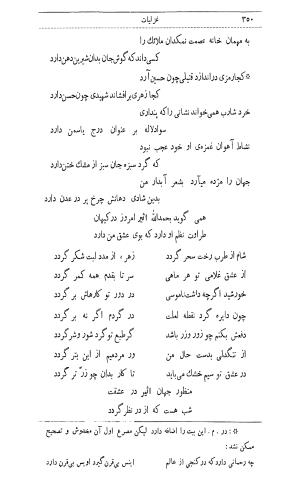 ۳۵۰ غزلیات
به مهمان خانه عصمت نمکدان ملائک را
کسی داند که گوش جان بدان شیرین دهن دارد
* کجا رمزی در اندازد قتیلی چون حسین آرد
کجا زهری بر افشاند شهیدی چون حسن دارد
خرد شارب همی خواند نشانی را که پنداری
سواد لاله بر عنوان درج یاسمن دارد
نشاط آهوان غمزه‌ی او خود عجب نبود
که گرد سبزه جان سبز از مشک ختن دارد
جهان را مژده میآرد بشعر آبدار من
بدین شادی دهانش چرخ پر در عدن دارد
همی گوید بحمدالله اثیر امروز در کیهان
طراوت نظم او دارد که بوی عشق من دارد
شام از طرب رخت سحر گردد زهر، از مدد لبت شکر گردد
از عشق غلامی تو هر ماهی سر تا بقدم همه کمر گردد
خورشید اگرچه داشت ناموسی در دور تو کارهاش بر گردد
چون دایره گرد نقطه لعلت در گردم اگر نه بر گردد
دفعش بکنم چو زور وزر باشد گر طبع تو گرد شور و شر گردد
از تنگدلی بدست حال من ور مردمیم از این بتر گردد
در عشق تو سیم خشک می‌باید تا کار بدان چو زر تر گردد
منظور جهان اثیر در عشقت
شب هست که از در نظر گردد
* : در . م . این بیت را اضافه دارد لیکن مصرع اول آن مغشوش و تصحیح
ممکن نشد :
چه رحمانی دارد که در کنجی از عالم اینس بی قرن گیرد اویس بی قرن دارد